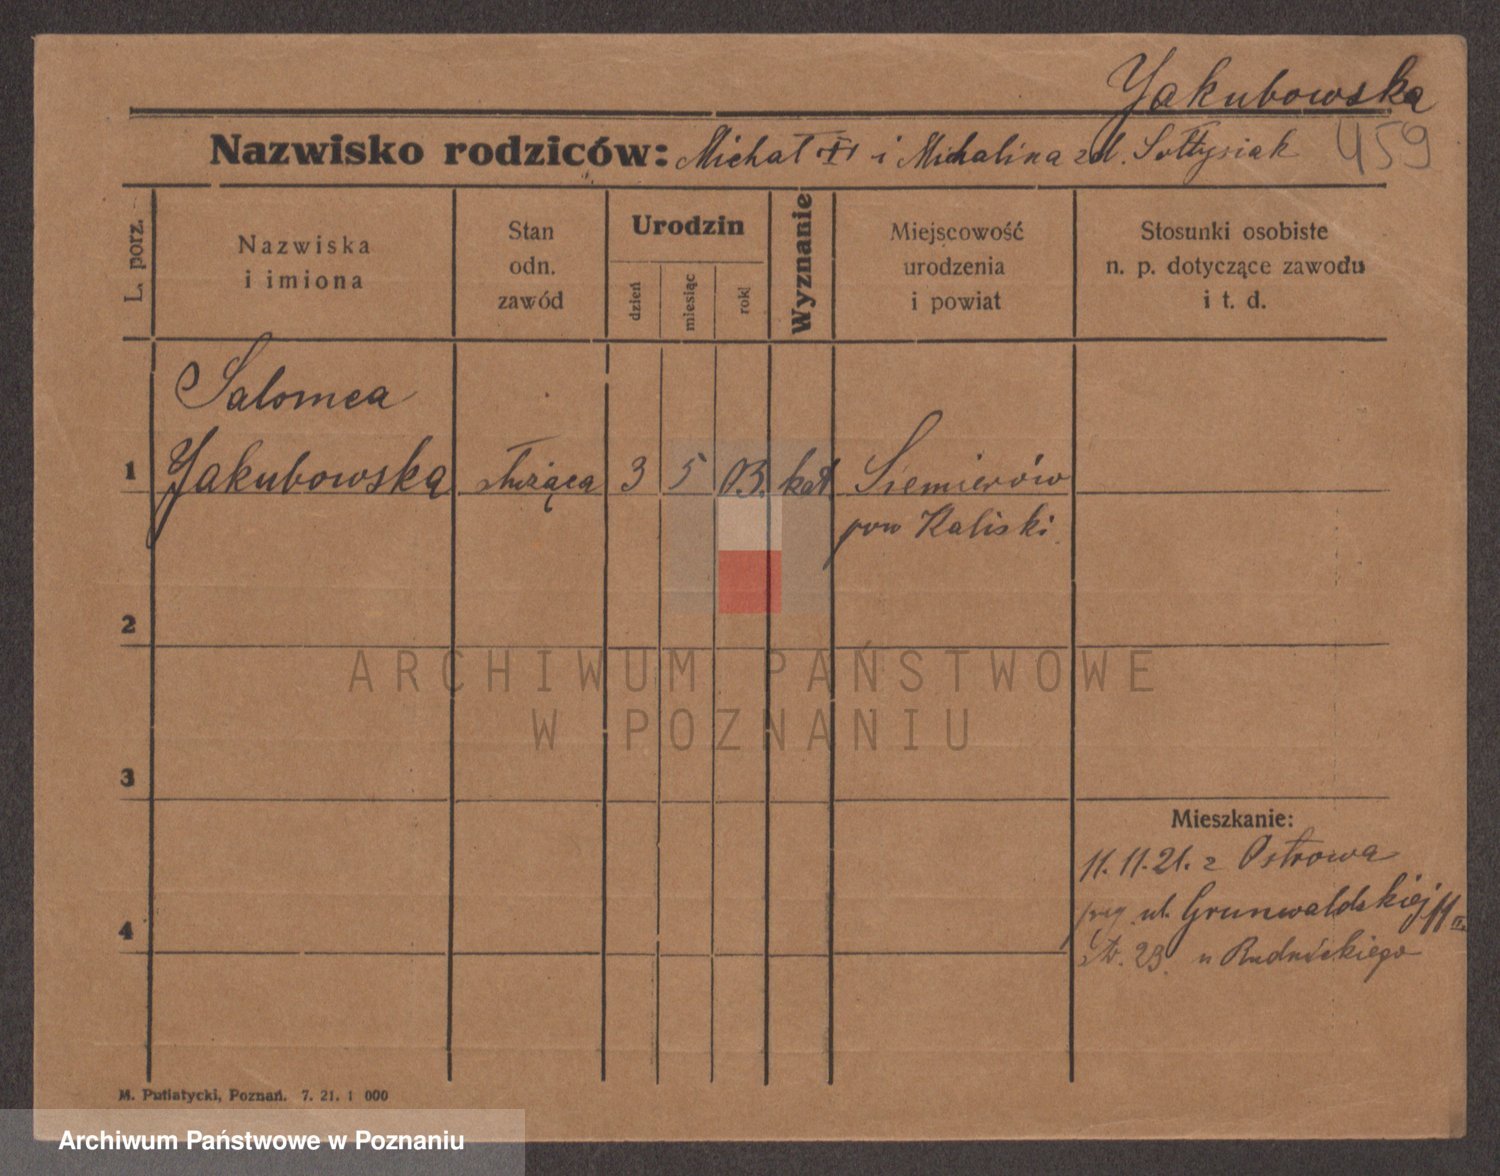 Yakubowska
Nazwisko rodziców: Michał i Michalina zd. Sołtysiak 459
L. porz.
Nazwiska
i imiona
Stan
odn.
zawód
Urodzin
dzień
miesiąc
rok
Wyznanie
Miejscowość
urodzenia
i powiat
Stosunki osobiste
n. p. dotyczące zawodu
i t. d.
Salomea
1 Yakubowska służąca 3 5 03. kat Siemierów
pow Kaliski.
2
ARCHIWUM PAŃSTWOWE
W POZNANIU
3
Mieszkanie:
11. 11. 21. z Ostrowa
ul. Grunwaldzkiej 11
4
23. u Rudnickiego
M. Putiatycki, Poznań. 7. 21. 1 000
Archiwum Państwowe w Poznaniu